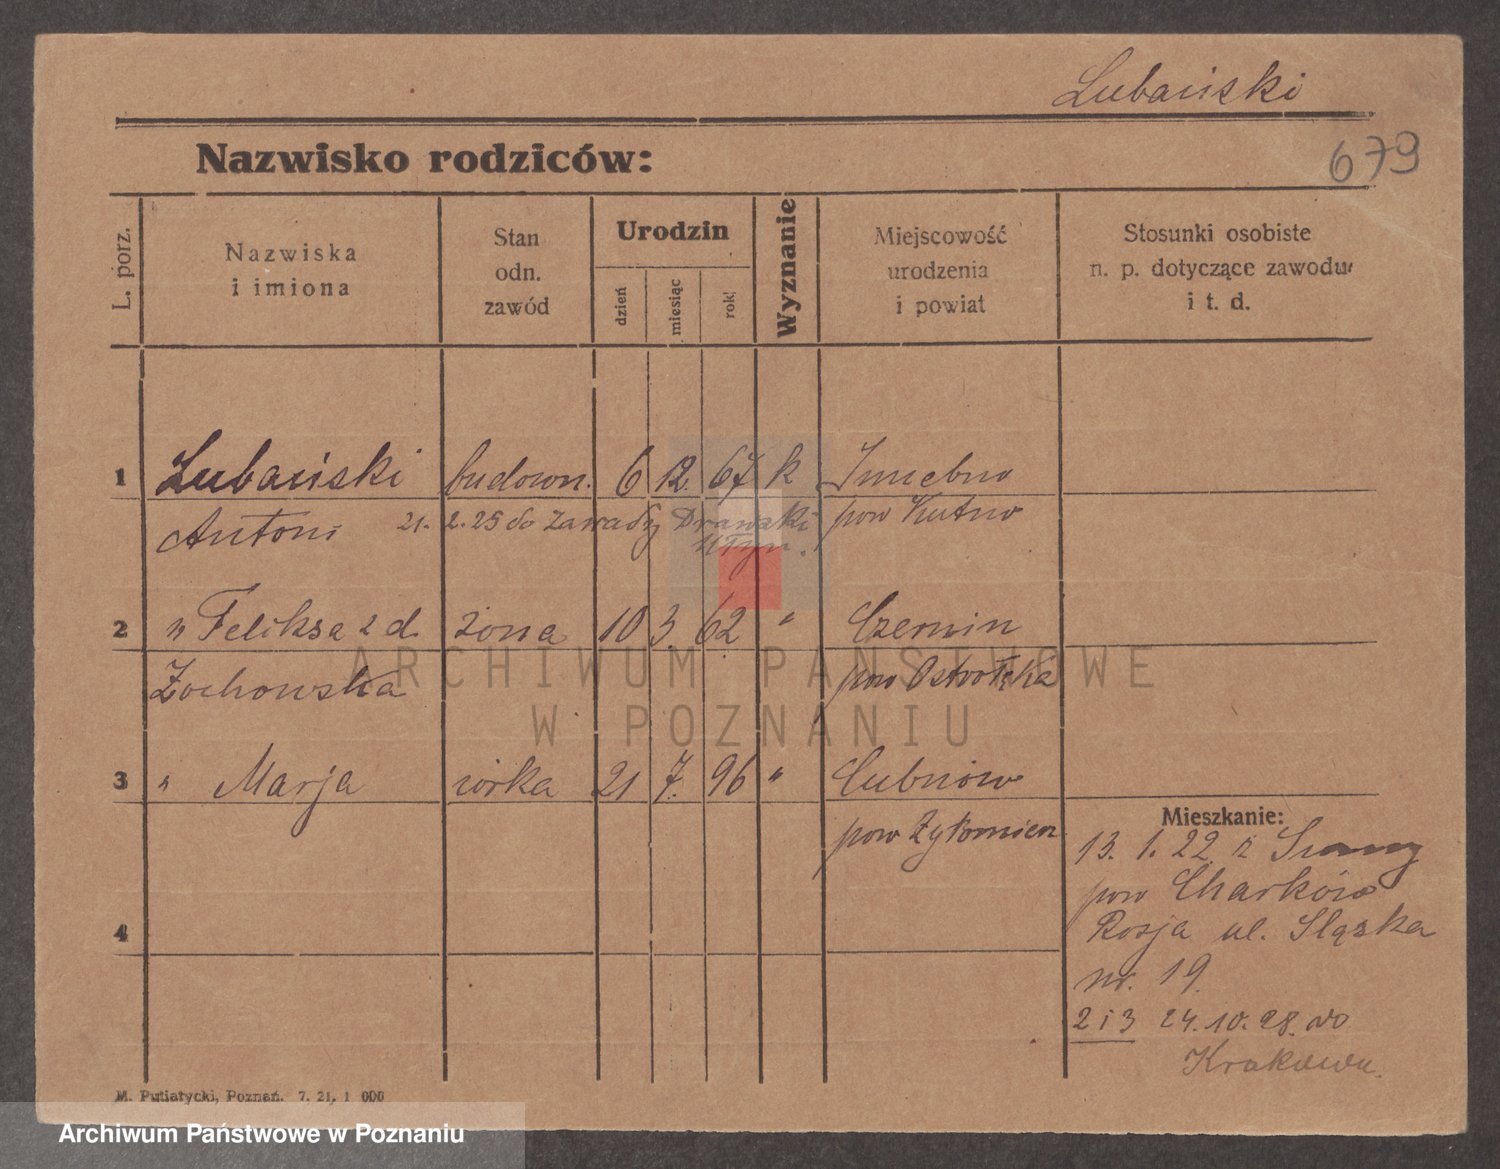 Lubański
679
Nazwisko rodziców:
L. porz.
Nazwiska
i imiona
Stan
odn.
zawód
Urodzin
dzień
miesiąc
rok
Wyznanie
Miejscowość
urodzenia
i powiat
Stosunki osobiste
n. p. dotyczące zawodu
i t. d.
1 Lubański budown. 6 12. 67 k
Antoni 21. 2. 25 do Zawady Drawski pow Kutno
Młyn.
2 " Feliksa z d. żona 10 3. 62 " Czerwin
Żochowska pow Ostrołęka
3 " Marja córka 21 7. 96 "
pow Żytomierz
Mieszkanie:
13. 1. 22 z
pow Charków
4
Rosja ul. Śląska
nr. 19.
2 i 3 24. 10. 28. do
Krakowa.
M. Putiatycki, Poznań. 7. 21, 1 000
ARCHIWUM PAŃSTWOWE
W POZNANIU
Archiwum Państwowe w Poznaniu